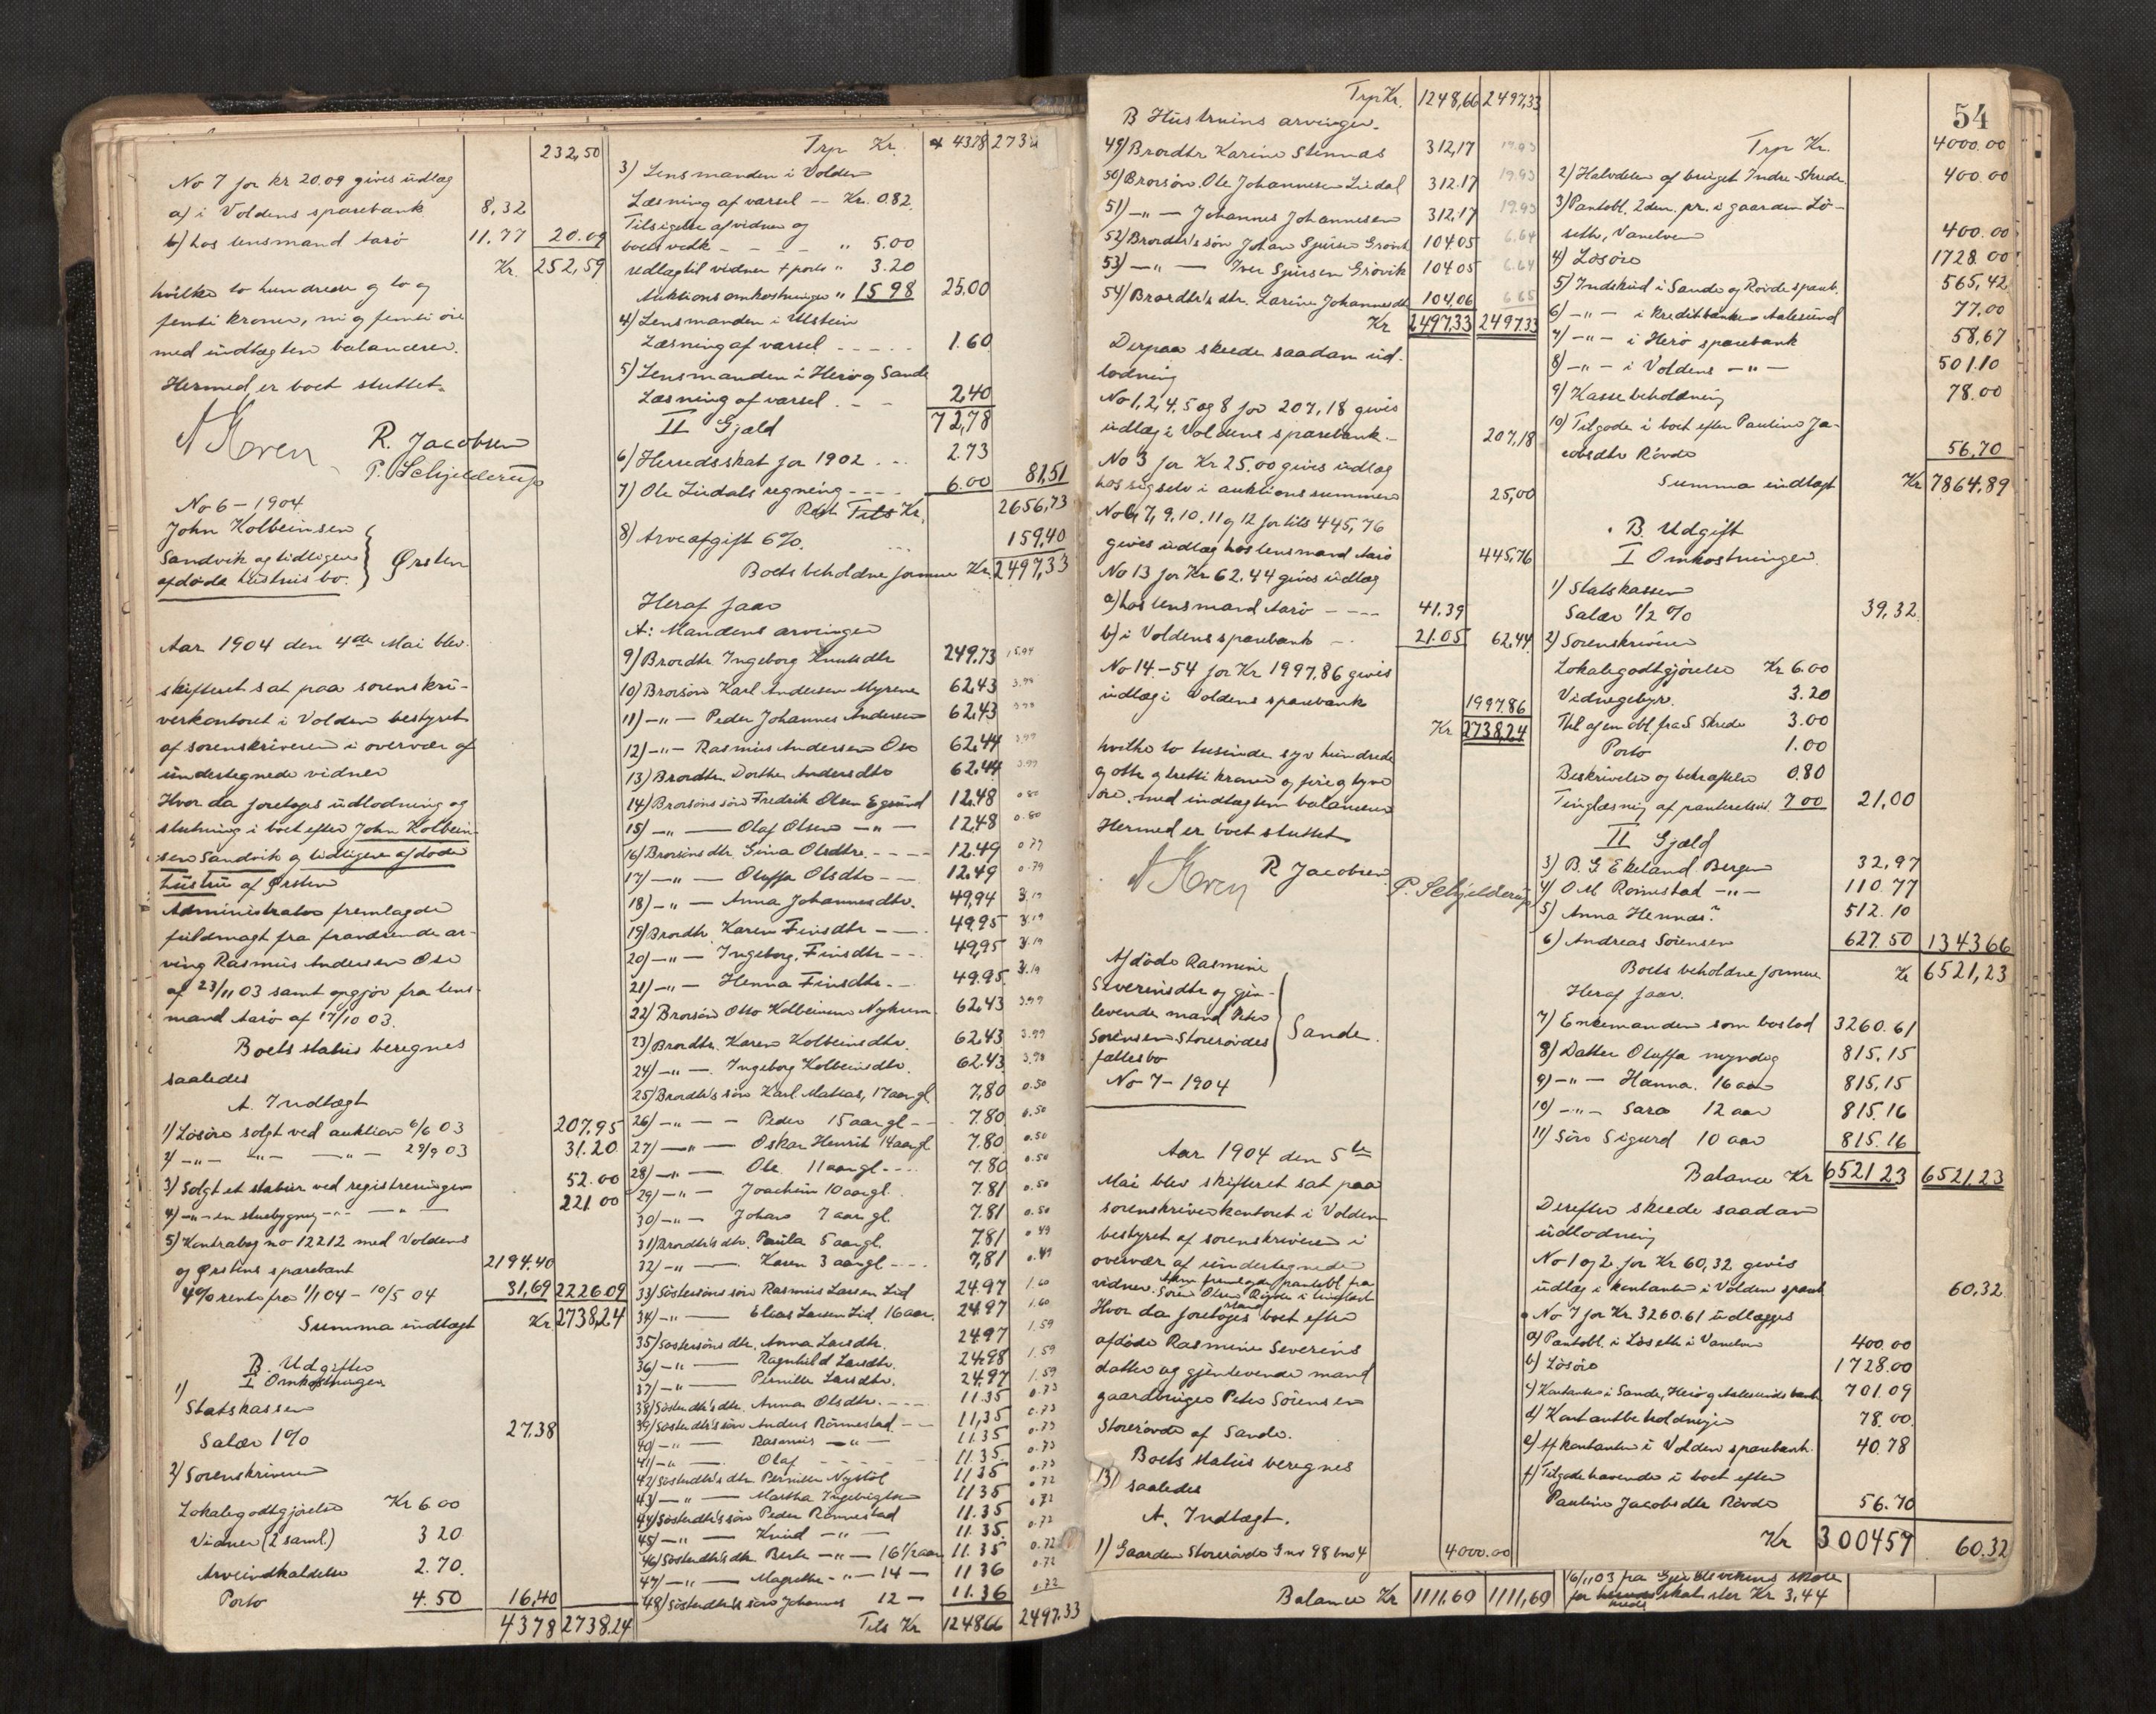 232,50
No 7 for kr 20.09 gives udlæg
a) i Voldens sparebank 8,32
b) hos lensmand Aarö 11.77 20.09
Kr. 252,59
hvilke to hundrede og to og
femti kroner, ni og femti öre
med indtægten balancerer.
Hermed er boet sluttet.
R. Jacobsen
P. Schjelderup
No 6 - 1904
John Kolbeinsen
Sandvik og tidligere
afdöde hustrus bo.
Ørsten
Aar 1904 den 4de Mai blev
skifteret sat paa sorenskri-
verkontoret i Volden bestyret
af sorenskriveren i overvær af
undertegnede vidner
Hvor da foretoges udlodning og
slutning i boet efter John Kolbein-
sen Sandvik og tidligere afdöde
hustru af Ørsten
Administrator fremlagde
fuldmagt fra fraværende ar-
ving Rasmus Andersen Ose
af 23/11 03 samt opgjör fra lens-
mand Aarö af 17/10 03.
Boets status beregnes
saaledes
A. Indtægt
1) Lösöre solgt ved auktion 6/6 03 207.95
2) -"- -"- -"- 29/9 03 31.20
3) Solgt et stabur ved registreringen 52.00
4) -"- en stuebygning -"- -"- 221.00
5) Kontrabog no 12212 med Voldens
og Ørstens sparebank 2194.40
4% rente fra 1/1 04 - 10/5 04 31,69 2226.09
Summa indtægt Kr 2738,24
B. Udgifter
I Omkostninger
1)
Statskassen
Salær 1% 27.38
2) Sorenskriveren
Lokalegodtgjörelse Kr 6.00
Vidner (2 saml.) 3 20
Arveindkaldelse 2.70.
Porto 4.50 16,40
4378 2738.24
Trp Kr. 4378 2738
3) Lensmanden i Volden
Læsning af varsel -- Kr. 0.82
Tilsigelse af vidner og
boets vedk - - - " 5.00
Udlæg til vidner + porto " 3.20
Auktionsomkostninger " 15 98 25.00
4) Lensmanden i Ulstein
Læsning af varsel - - - - - 1.60
5) Lensmanden i Herö og Sande
Læsning af varsel - - 2,40
72,78
II Gjæld
6) Herredsskat for 1902 - - - 2.73
7) Ole Lindals regning - - - - 6.00 81,51
Rest Kr. 2656,73
8) Arveafgift 6%. ... 159,40
Boets beholdne formue Kr. 2497,33
Heraf faar
A: Mandens arvinger
9) Brordtr Ingeborg Knutsdtr 249,73 15.94
10) Brorsön Karl Andersen Myrene 62,43 3.98
11) -"- Peder Johannes Andersen 62,43 3.98
12) -"- Rasmus Andersen Ose 62,44 3.99
13) Brordtr. Dorthea Andersdtr 62.44 3.99
14) Brorsöns sön Fredrik Olsen Egsund 12.48 0.80
15) -"- Olaf Olsen -"- 12.48 0.80
16) Brorsöns dtr. Gina Olsdtr. - - - - 12.49 0.79
17) -"- Oluffa Olsdtr - - 12.49 0.79
18) -"- Anna Johannesdtr. 49,94 3.19
19) Brordtr. Karen Finsdtr - - 49.95 3.19
20) -"- Ingeborg Finsdtr - - 49,95 3.19
21) -"- Henna Finsdtr - - 49.95 3.19
22) Brorsön Otto Kolbeinsen 62,43 3.99
23) Brordtr. Karen Kolbeinsdtr. 62,43 3.99
24) -"- Ingeborg Kolbeinsdtr. 62.43 3.98
25) Brordtr's sön Karl Matias, 17 aar gl. 7,80 0.50
26) -"- Peder 15 aar gl - - 7.80 0.50
27) -"- Oskar Henrik 14 aar gl 7.80 0.50
28) -"- Ole 11 aar gl - - - 7.80 0.50
29) -"- Joachim 10 aar gl. 7.81 0.50
30) -"- Johan 7 aar gl. 7.81 0.50
31) Brordtr's dtr. Paula 5 aar gl. 7.81 0.49
32) -"- Karen 3 aar gl - - - 7,81 0.49
33) Söstersöns sön Rasmus Larsen Lid 24.97 1.60
34) -"- Elias Larsen Lid 16 aar 24.97 1.60
35) Söstersöns dtr. Anna Larsdtr. 24.97 1.59
36) -"- Ragnhild Larsdtr. 24.98 1.59
37) -"- Pernille Larsdtr. 24.97 1.59
38) Söstérdtr's dtr. Anna Olsdtr. - - - 11.35 0.73
39) Sösterdtr's sön Anders Rönnestad - - 11,35 0.73
40) -"- Rasmus -"- 11.35 0.73
41) -"- Olaf - - - - 11.35. 0.73
42) Sösterdtr's dtr Pernille Nystöl 11 35 0.73
43) -"- Martha Ingebrigtsen 11 35 0.72
44) Sösterdtr's sön Peder Rönnestad 11.35 0.72
45) -"- Knud -"- 11.35. 0.72
46) Sösterdtr's dtr. Berte -"- 16 1/2 aar 11.35 0.72
47) -"- Magrethe -"- 14 - 11 36 0.72
48) Sösterdtr's sön Johannes 12 - 11.36 0.72
Tils Kr 1248 66 2497.33
Trp Kr. 1248,66 2497,33
B Hustruens arvinger.
49) Brordtr Karine Stennæs 312,17 19.93
50) Brorsön Ole Johannesen Lindal 312.17 19.93
51) -"- Johannes Johannesen 312,17 19.93
52) Brordtr's sön Johan Sjursen Grövik 104.05 6.64
53) -"- Iver Sjursen Grövik 104 05 6.64
54) Brordtr's dtr. Larine Johannesdtr 104.06 6 65
Kr 2497.33 2497.33
Derpaa skeede saadan ud-
lodning
No 1, 2, 4, 5 og 8 for 207,18 gives
udlæg i Voldens sparebank - 207,18
No 3 for Kr 25.00 gives udlæg
hos sig selv i auktionssummen 25,00
No 6, 7, 9, 10, 11 og 12 for tils 445,76
gives udlæg hos lensmand Aarö 445,76
No 13 for Kr 62.44 gives udlæg
a) hos lensmand Aarö - - - - 41.39
b) i Voldens sparebank - - 21.05 62,44
No 14 - 54 for Kr 1997.86 gives
udlæg i Voldens sparebank 1997.86
Kr 2738.24
hvilke to tusinde syv hundrede
og otte og tretti kroner og fire og tyve
öre, med indtægten balancerer
Hermed er boet sluttet
R Jacobsen
P. Schjelderup
Afdöde Rasmine
Severinsdtr og gjen-
levende mand Peter
Sörensen Störerövdes
fællesbo
Sande.
No 7 - 1904
Aar 1904 den 5te
Mai blev skifteret sat paa
sorenskriverkontoret i Volden
bestyret af sorenskriveren i
overvær af undertegnede
vidner. pantobl. fra
Hvor da foretoges boet efter
afdöde Rasmine Severins
datter og gjenlevende mand
gaardbruger Peter Sörensen
Störerövde af Sande.
Boets status beregnes
saaledes
A. Indtægt.
1) Gaarden Störerövde Gno 98 bno 4 4000.00
Balance Kr 1111,60 1111,60
54
Trp Kr. 4000.00
2) Halvdelen af bruget Indre-Skrede 400.00
3) Pantobl. 2den pr. i gaarden Lö-
seth, Vanelven 400.00
4) Lösöre 1728.00
5) Indskud i Sande og Rövde spareb. 565,42
6) -"- i Kreditbanken Aalesund 77,00
7) -"- i Herö sparebank 58,67
8) -"- i Voldens -"- 501.10
9) Kassebeholdning 78.00
10) Tilgode i boet efter Pauline Ja-
cobsdtr Rövde 56,70
Summa indtægt Kr 7864,89
B. Udgift
I Omkostninger.
1) Statskassen
Salær 1/2 % 39,32
2) Sorenskriveren
Lokalegodtgjörelse Kr 6.00
Vidnegebyr. 3.20
Thl af en obl. fra S Skrede 3.00
Porto 1.00
Beskrivelse og bekræftelse 0.80
Tinglæsning af 7 00 21,00
II Gjæld
3) B. G Ekeland Bergen 32,97
4) O M Roinestad -"- 110.77
5) Anna Hennas? 512.10
6) Andreas Sörensen 627.50 1343.66
Boets beholdne formue Kr 6521,23
Heraf faar.
7) Enkemanden som boslod 3260.61
8) Datter Oluffa myndig 815.15
9) -"- Hanna 16 aar 815,15
10) -"- Sara 12 aar 815.16
11) Sön Sigurd 10 aar 815.16
Balance Kr 6521 23 6521,23
Derefter skeede saadan
udlodning
No 1 og 2 for Kr 60,32 gives
udlæg i kontanter i Volden spareb. 60,32
No 7 for Kr. 3260.61 udlægges
a) Pantobl. i Löseth i Vanelven 400.00
b) Lösöre 1728.00
c) Kontanter i Sande, Herö og Aalesunds bank 701.09
d) Kontantbeholdningen 78.00
e) Af kontanter i Volden sparebank. 40.78
f) Tilgodehavende i boet efter
Pauline Jacobsdtr Rövde 56.70
Kr 3004 57 60.32
16/11 03 fra skole
for skat Kr 3,44